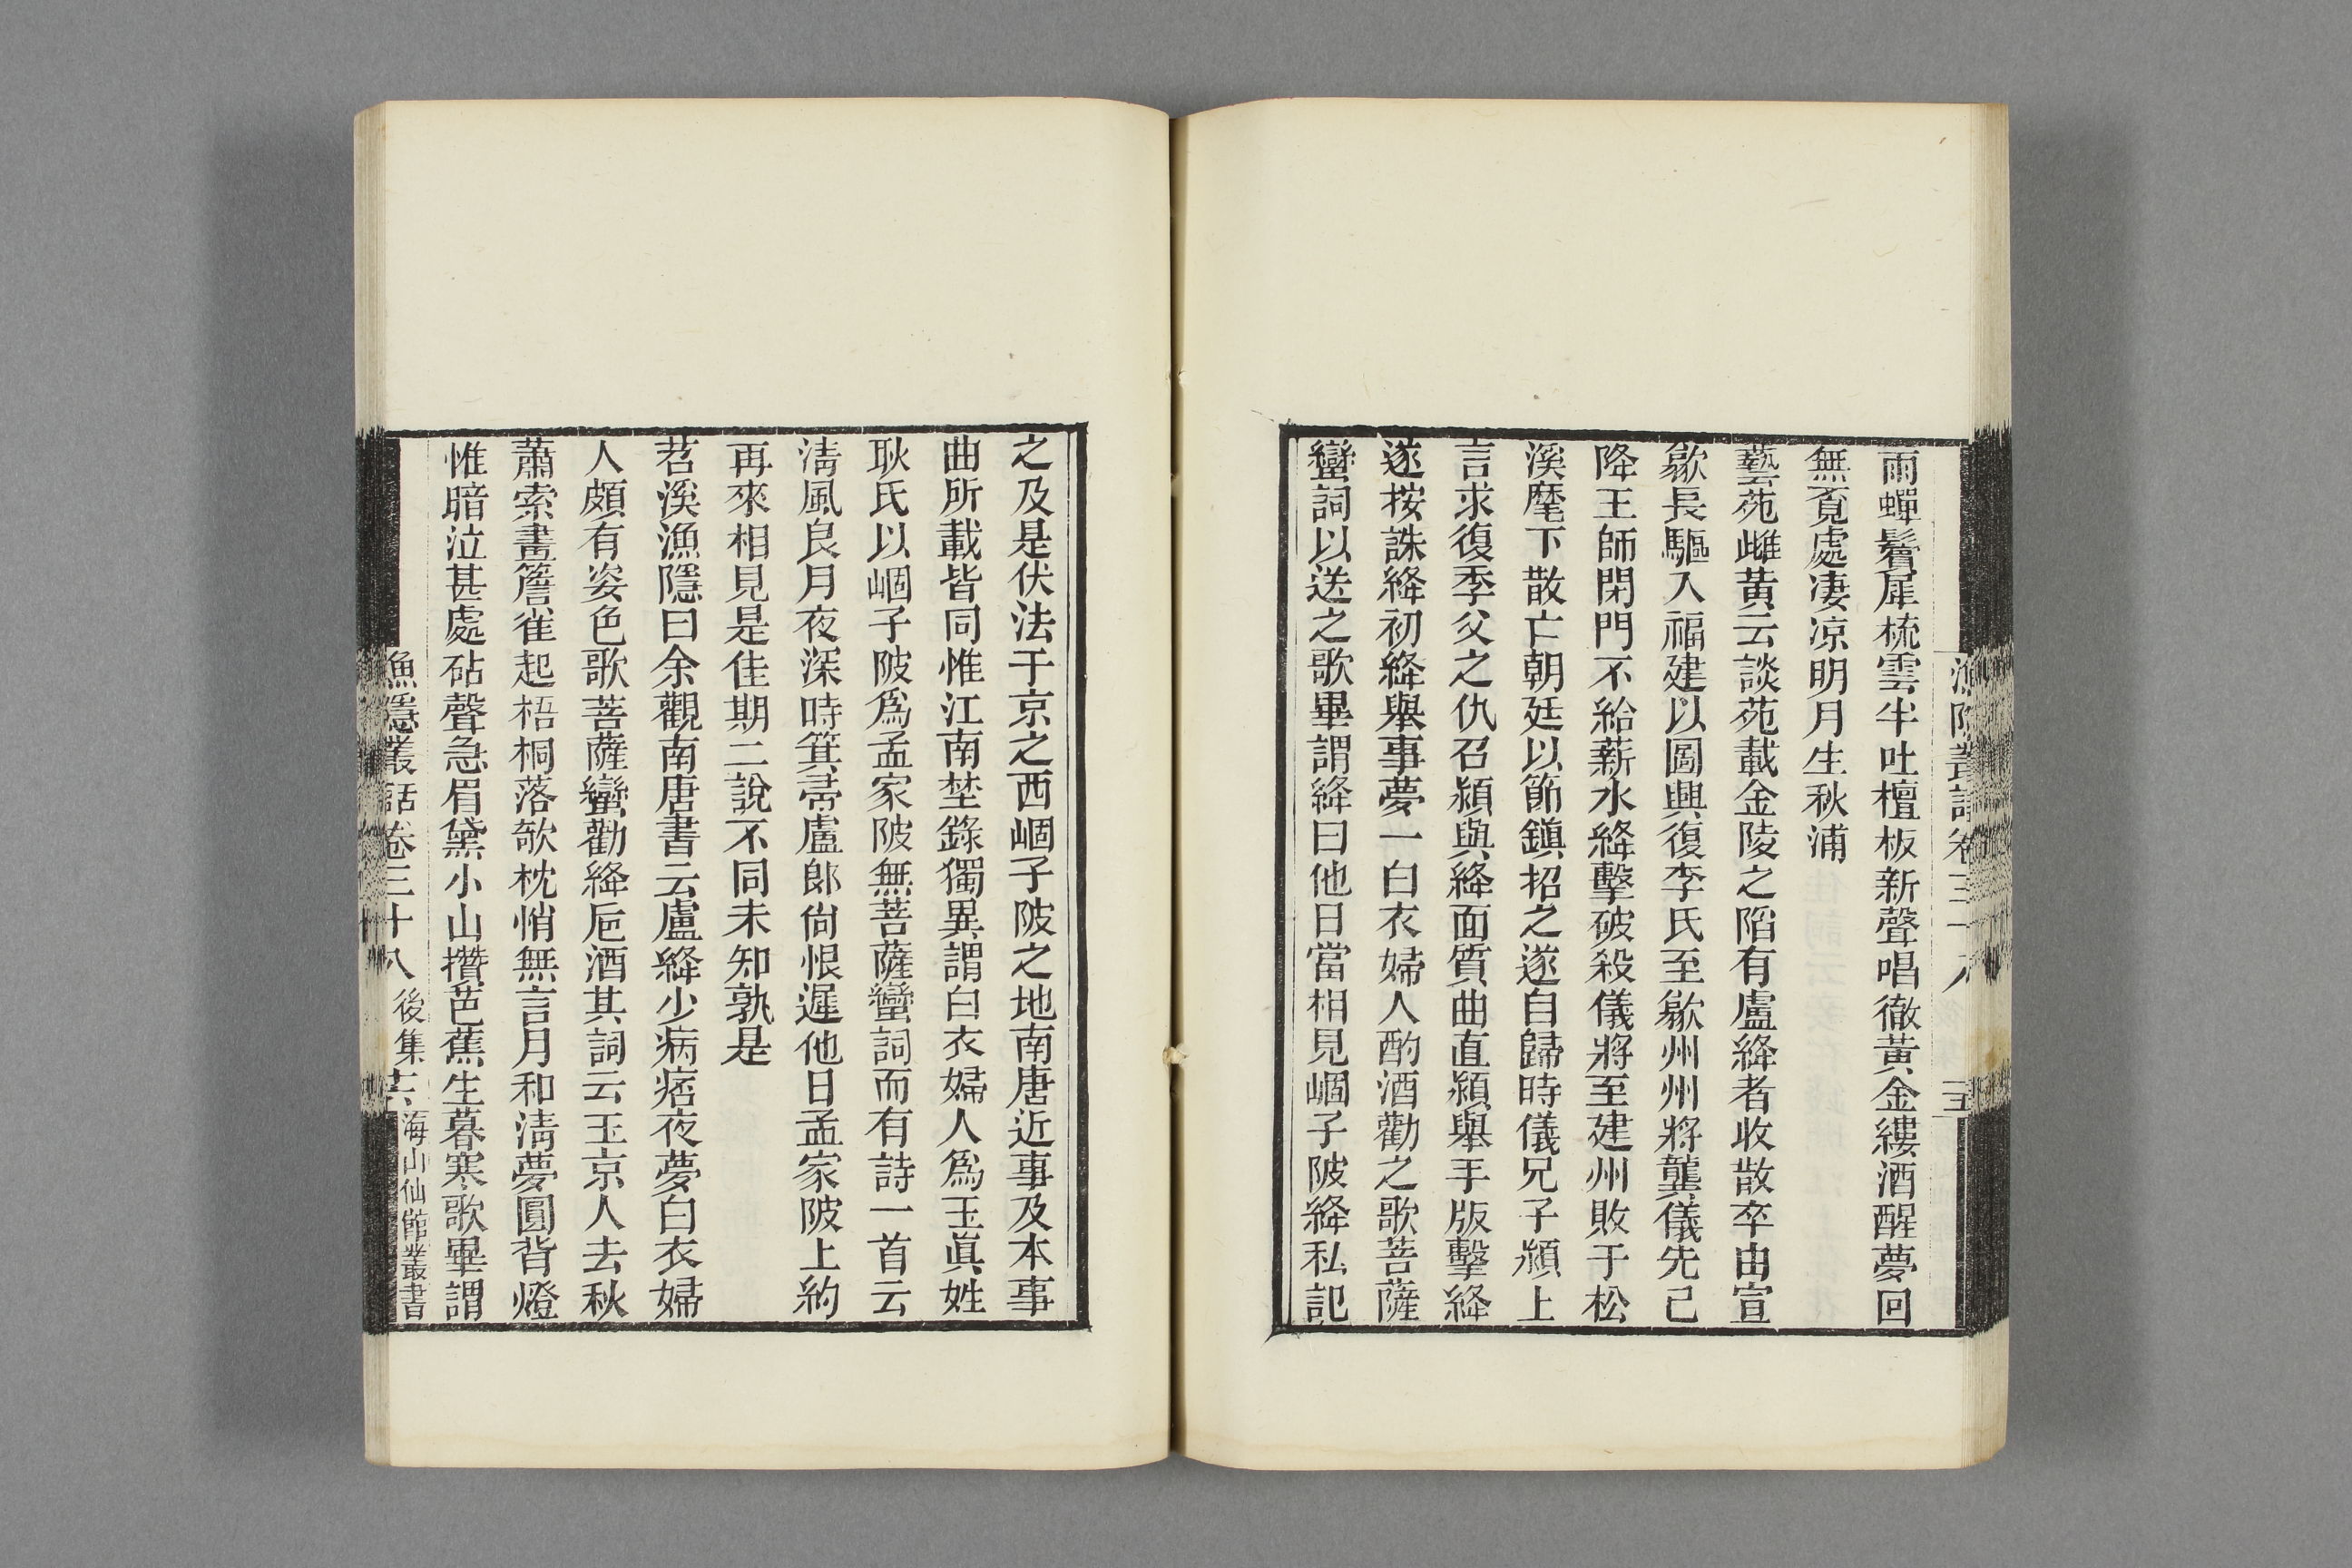 雨蟬鬢犀梳雲半吐檀板新聲唱徹黃金縷酒醒夢回
無覔處凄凉明月生秋浦
藝苑雌黃云談苑載金陵之陷有盧絳者收散卒由宣
歙長驅入福建以圖興復李氏至歙州州將龔儀先已
降王師閉門不給薪水絳擊破殺儀將至建州敗于松
溪麾下散亡朝廷以節鎭招之遂自歸時儀兄子潁上
言求復季父之仇召潁與絳面質曲直潁舉手版擊絳
遂按誅絳初絳舉事夢一白衣婦人酌酒勸之歌菩薩
蠻詞以送之歌畢謂絳曰他日當相見崓子陂絳私記
之及是伏法于京之西崓子陂之地南唐近事及本事
曲所載皆同惟江南埜錄獨異謂白衣婦人爲玉眞姓
耿氏以崓子陂爲孟家陂無菩薩蠻詞而有詩一首云
淸風良月夜深時箕帚盧郎尙恨遲他日孟家陂上約
再來相見是佳期二說不同未知孰是
苕溪漁隱曰余觀南唐書云盧絳少病痁夜夢白衣婦
人頗有姿色歌菩薩蠻勸絳巵酒其詞云玉京人去秋
蕭索畫簷雀起梧桐落欹枕悄無言月和淸夢圓背燈
惟暗泣甚處砧聲急眉黛小山攢芭蕉生暮寒歌畢謂
漁隱叢話卷三十八 後集 海山仙館叢書